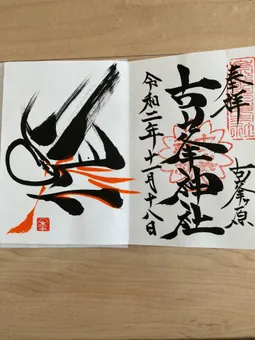 奉拝
古峯原
古峯神社
令和二年十月十八日